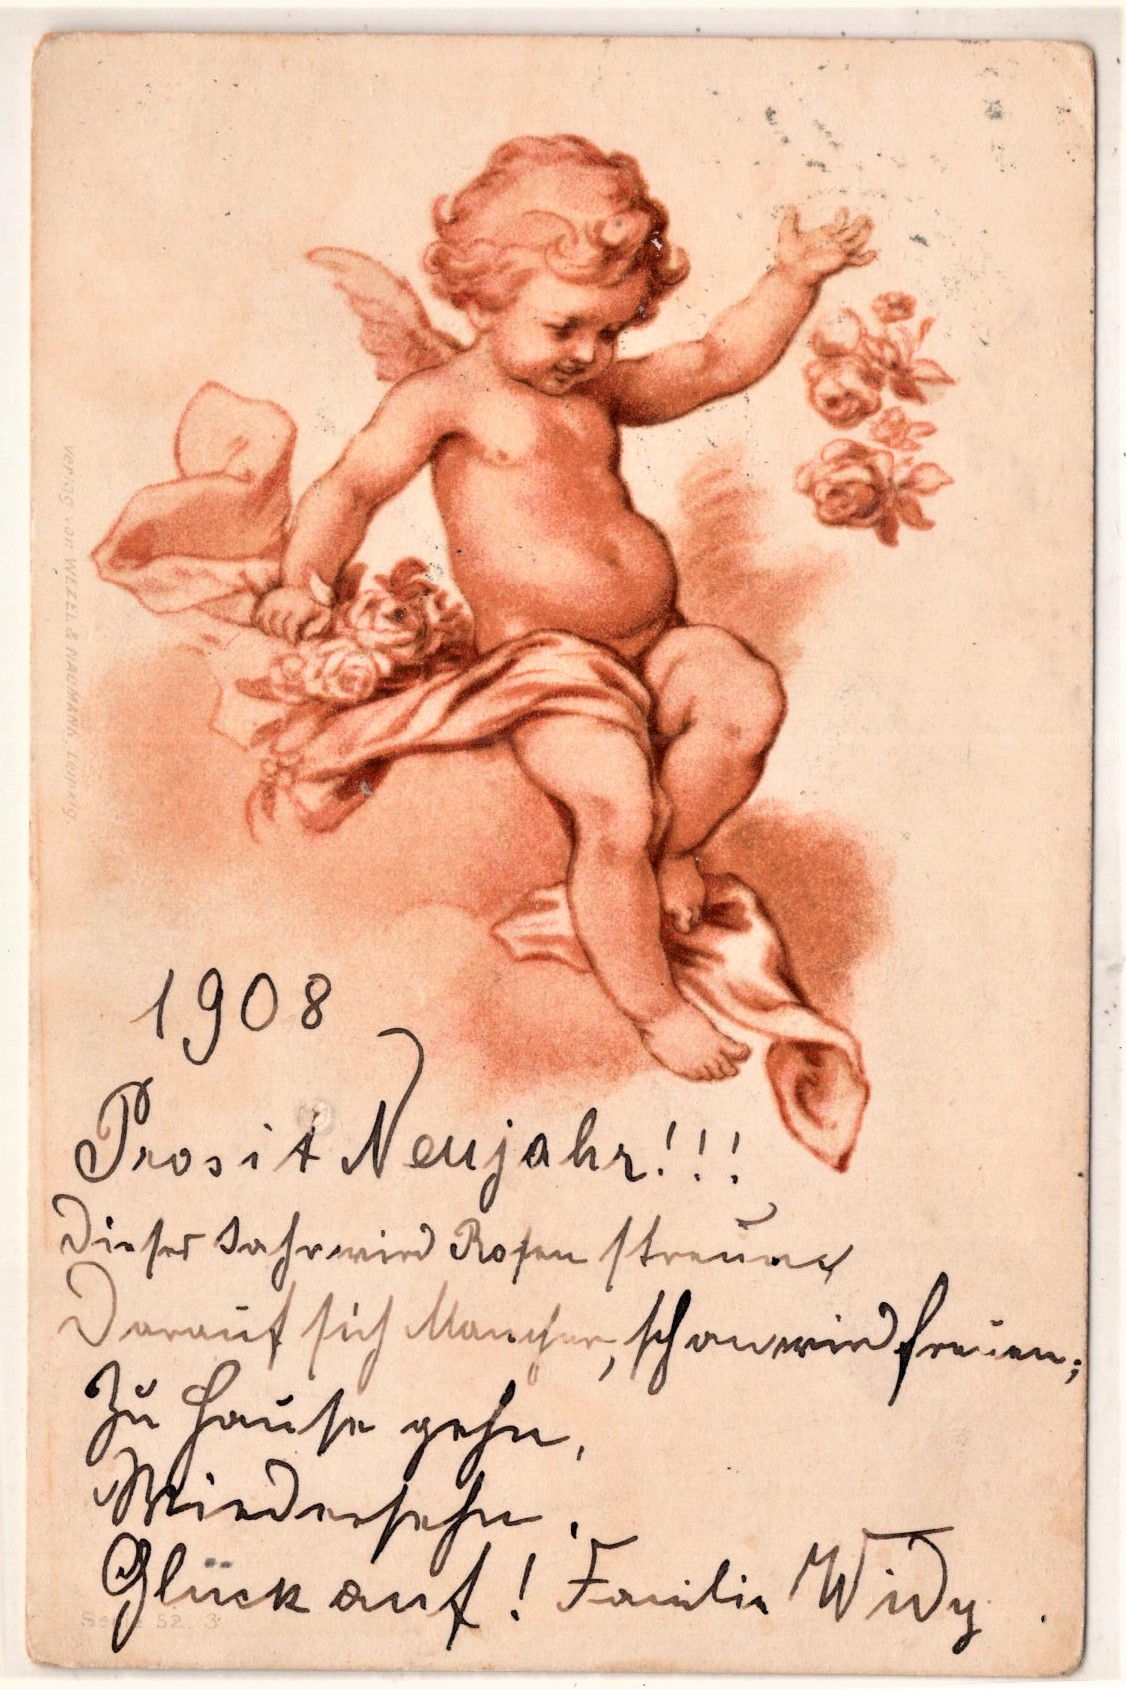 Verlag von WEZEL & NAUMANN, Leipzig
1908
Prosit Neujahr!!!
Dieses Jahr wird Rosen streuen
Darauf sich Mancher, schon wird freuen;
Zu Hause gehn,
Wiedersehn,
Glück auf! Familie Widy
Serie 52. 3